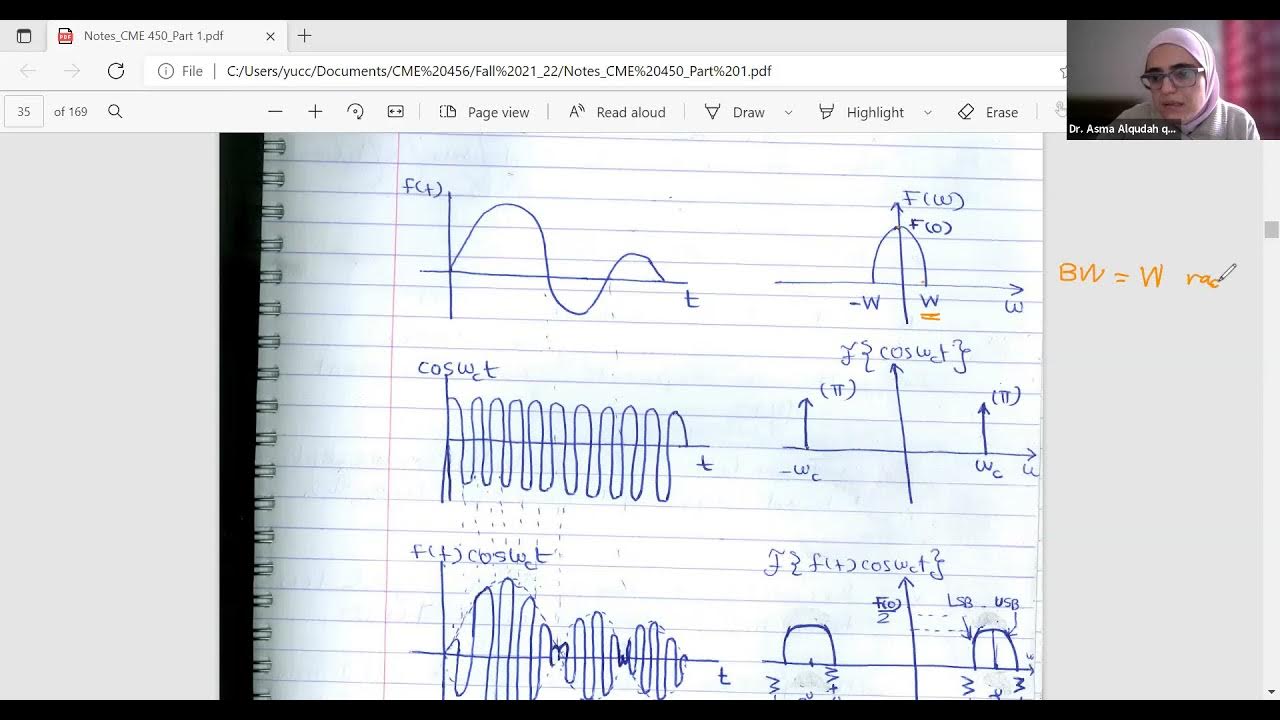 Notes_CME 450_Part 1.pdf
File C:/Users/yucc/Documents/CME%20456/Fall%2021_22/Notes_CME%20450_Part%201.pdf
35 of 169 Page view Read aloud Draw Highlight Erase
Dr. Asma Alqudah q...
f(t)
t
F(ω)
F(0)
-W W ω
BW = W rad
cosω_ct
t
ℱ{cosω_ct}
(π) (π)
-ω_c ω_c ω
f(t)cosω_ct
t
ℱ{f(t)cosω_ct}
F(0)/2 LSB USB